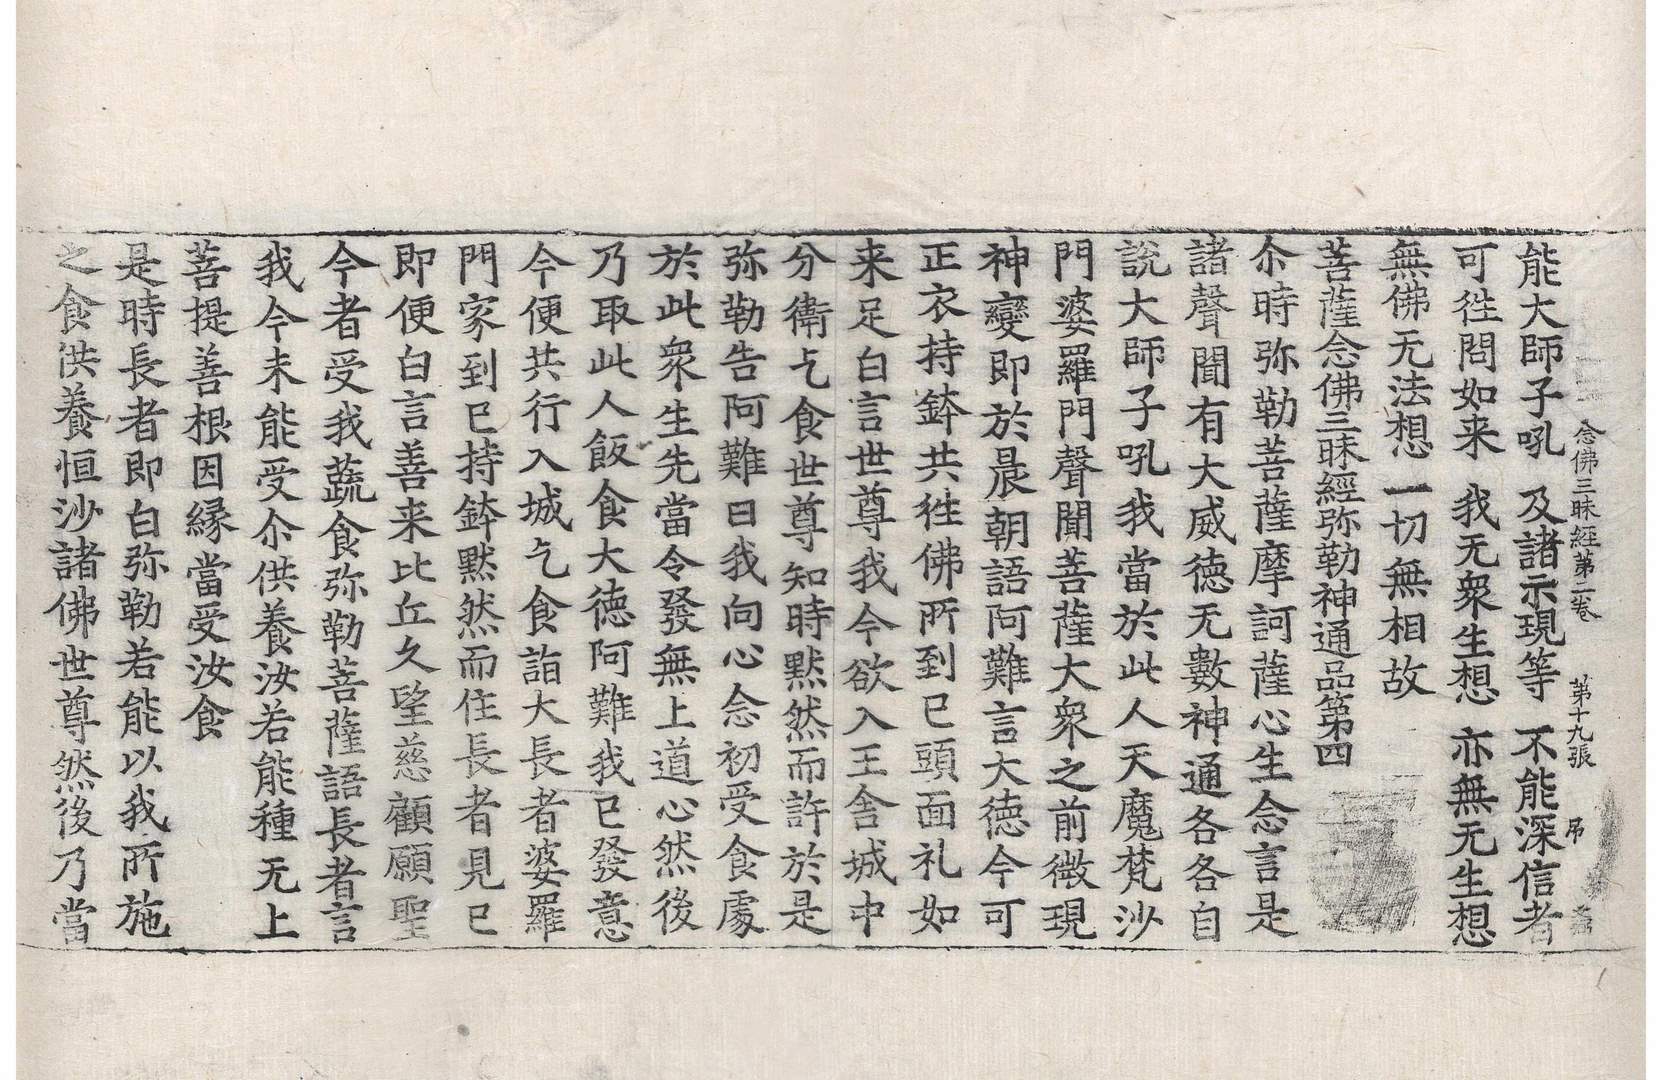 念佛三昧經第二卷　第十九張　吊
能大師子吼　及諸示現等　不能深信者
可徃問如来　我无衆生想　亦無无生想
無佛无法想　一切無相故
菩薩念佛三昧經弥勒神通品第四
尒時弥勒菩薩摩訶薩心生念言是
諸聲聞有大威德无數神通各各自
說大師子吼我當於此人天魔梵沙
門婆羅門聲聞菩薩大衆之前微現
神變即於晨朝語阿難言大德今可
正衣持鉢共徃佛所到已頭面礼如
来足白言世尊我今欲入王舍城中
分衛乞食世尊知時默然而許於是
弥勒告阿難曰我向心念初受食處
於此衆生先當令發無上道心然後
乃取此人飯食大徳阿難我已發意
今便共行入城乞食詣大長者婆羅
門家到已持鉢默然而住長者見已
即便白言善来比丘久望慈顧願聖
今者受我蔬食弥勒菩薩語長者言
我今未能受尒供養汝若能種无上
菩提善根因縁當受汝食
是時長者即白弥勒若能以我所施
之食供養恒沙諸佛世尊然後乃當